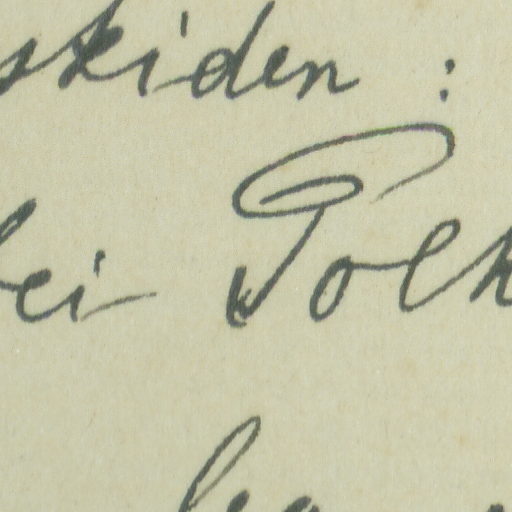 skiden :
bei Polk